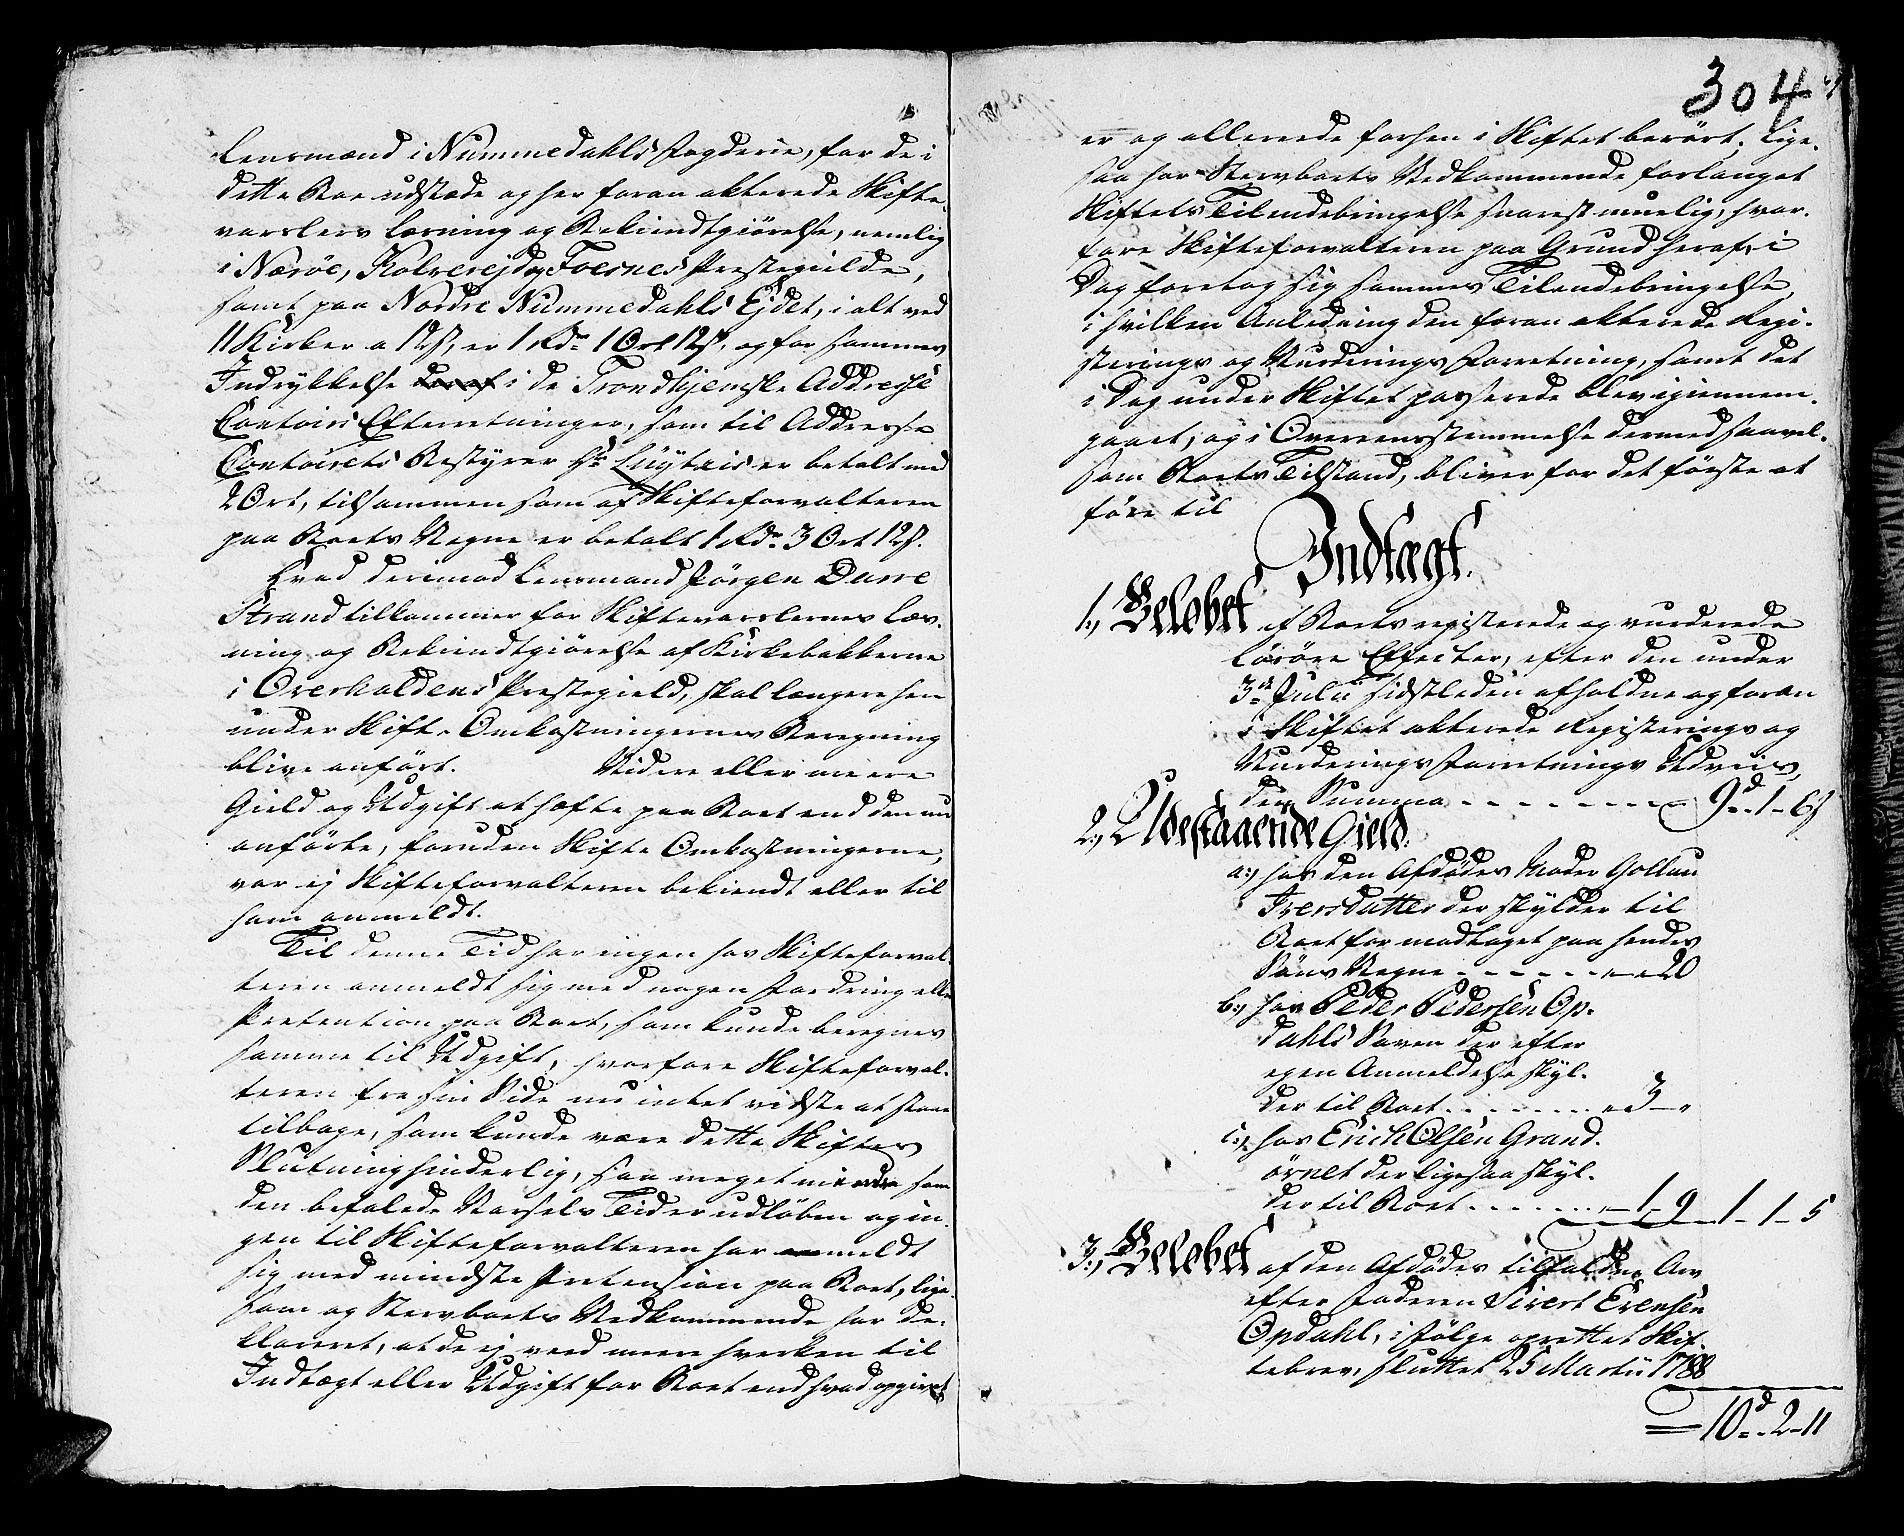 Lensmænd i Nummedahls Fogderie, for de i
dette Boe udstæde og her foran akterede Skifte-
varslers Læsning og Bekiendtgiørelse, nemlig
i Nærøe, Kolverejd og Foesnes Præstegielde,
samt paa Nordre Nummedahls Ejdet, i alt ved
11 Kirker a 12 s, er 1 Rdr 1 Ort 12 s, og for sammes
Indrykkelse i de Trondhjemske Addresse
Contoirs Efterretninger, som til Addresse
Contoirets Bestyrer Hr Lüytkis er betalt med
2 Ort, tilsammen som af Skifteforvalteren
paa Boets Vegne er betalt 1 Rdr 3 Ort 12 s.
Hvad derimod Lensmand Jørgen Darre
Strand tilkommer for Skiftevarslernes Læs-
ning og Bekiendtgiørelse af Kirkebakkerne
i Overhaldens Præstegield, skal længere hen
under Skifte Omkostningernes Beregning
blive anført. Videre eller meere
Gield og Udgift at hæfte paa Boet end den nu
anførte, foruden Skifte Omkostningerne,
var ej Skifteforvalteren bekiendt eller til
ham anmeldt.
Til denne Tid har ingen hos Skifteforval-
teren anmeldt sig med nogen Fordring eller
Prætention paa Boet, som kunde beregnes
samme til Udgift, hvorfore Skifteforval-
teren fra sin Side nu intet vidste at staae
tilbage, som kunde være dette Skiftes
Slutning hinderlig, saa meget mindre som
den befalede Varsels Tid er udløben og in-
gen til Skifteforvalteren har anmeldt
sig med mindste Prætension paa Boet, lige-
som og Stervboets Vedkommende har de-
klareret, at de ej veed meere hverken til
Indtægt eller Udgift for Boet end hvad opgivet
304
er og allerede forhen i Skiftet berørt. Lige-
saa har Stervboets Vedkommende forlanget
Skiftets Tilendebringelse snarest muelig, hvor-
fore Skifteforvalteren paa Grund heraf, i
Dag foretog sig sammes Tilendebringelse,
i hvilken Anledning den foran akterede Regi-
sterings og Vurderings Forretning, samt det
i Dag under Skiftet passerede blev igiennem-
gaaet, og i Overeensstemmelse dermed saavel-
som Boets Tilstand, bliver for det første at
føre til
Indtægt.
1.) Beløbet af Boets registerede og vurderede
Løsøre Effecter, efter den under
3de Julii sidstleden afholdne og foran
i Skiftet akterede Registerings og
Vurderings Forretnings Udviis,
den Summa - - - - - - - 9 d - 1 - 6 s
2.) Udestaaende Gield.
a.) hos den Afdødes Moder Gollau
Iversdatter der skylder til
Boet for modtaget paa hendes
Søns Vegne - - - - - - - 20
b.) hos Peder Pedersen Op-
dahls Søven der efter
egen Anmeldelse skyl-
der til Boet - - - - - - - 3 - "
c.) hos Erich Olsen Grand-
ørnet der ligesaa skyl-
der til Boet - - - - - - - 1 - 9 1 - 1 - 5
3.) Beløbet af den Afdødes tilfaldne Arv
efter Faderen Sivert Evensen
Opdahl, i følge oprettet Skif-
tebrev, sluttet 25 Martii 1788
10 d - 2 - 11